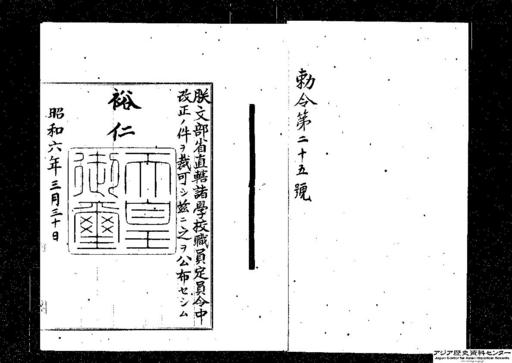 勅令第二十五號
朕文部省直轄諸學校職員定員令中
改正ノ件ヲ裁可シ茲ニ之ヲ公布セシム
裕仁
天皇
御璽
昭和六年三月三十日
アジア歴史資料センター
Japan Center for Asian Historical Records